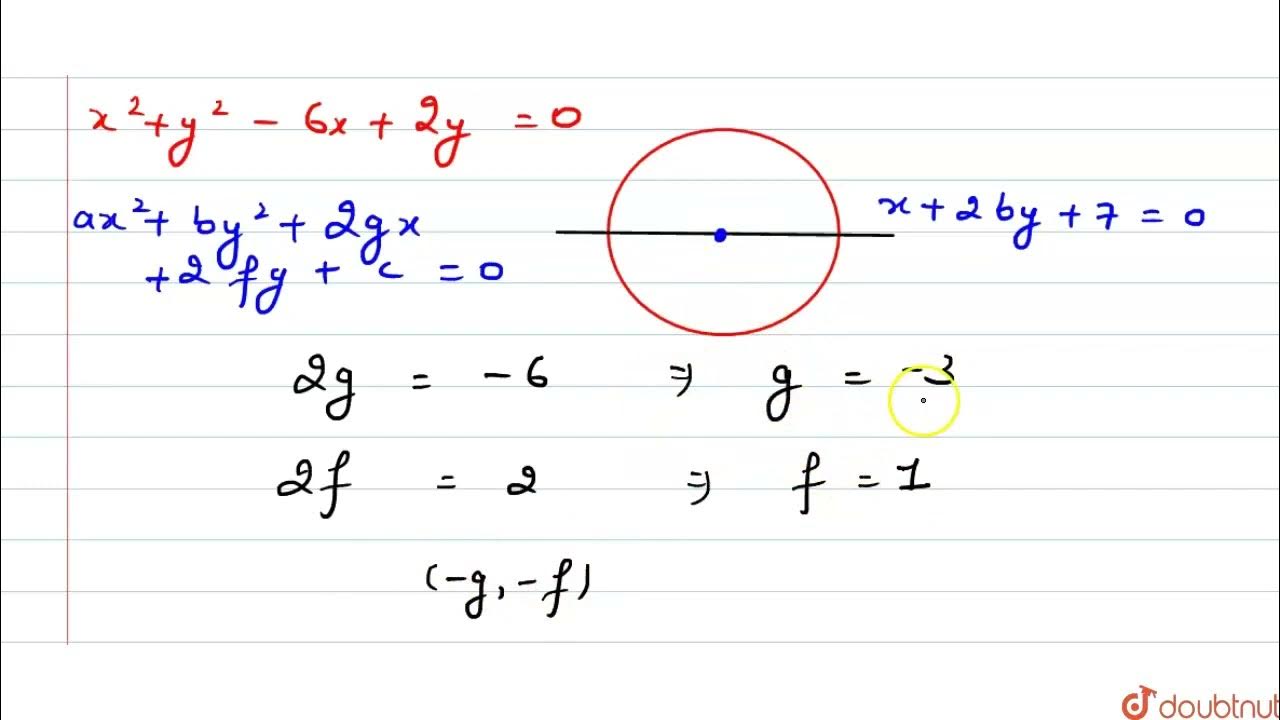 x² + y² - 6x + 2y = 0
ax² + by² + 2gx
+ 2fy + c = 0
x + 2by + 7 = 0
2g = -6 ⇒ g = -3
2f = 2 ⇒ f = 1
(-g, -f)
doubtnut